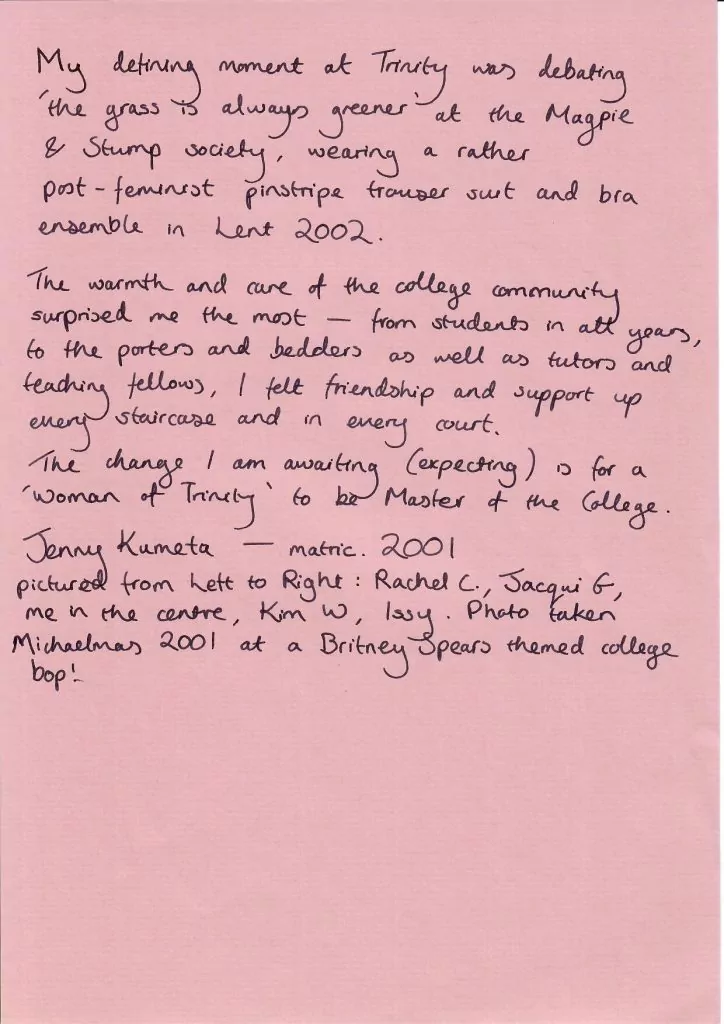 My defining moment at Trinity was debating
'the grass is always greener' at the Magpie
& Stump society, wearing a rather
post-feminist pinstripe trouser suit and bra
ensemble in Lent 2002.
The warmth and care of the college community
surprised me the most — from students in all years,
to the porters and bedders as well as tutors and
teaching fellows, I felt friendship and support up
every staircase and in every court.
The change I am awaiting (expecting) is for a
'Woman of Trinity' to be Master of the College.
Jenny Kumeta — matric. 2001
pictured from Left to Right: Rachel C., Jacqui G,
me in the centre, Kim W, Issy. Photo taken
Michaelmas 2001 at a Britney Spears themed college
bop!